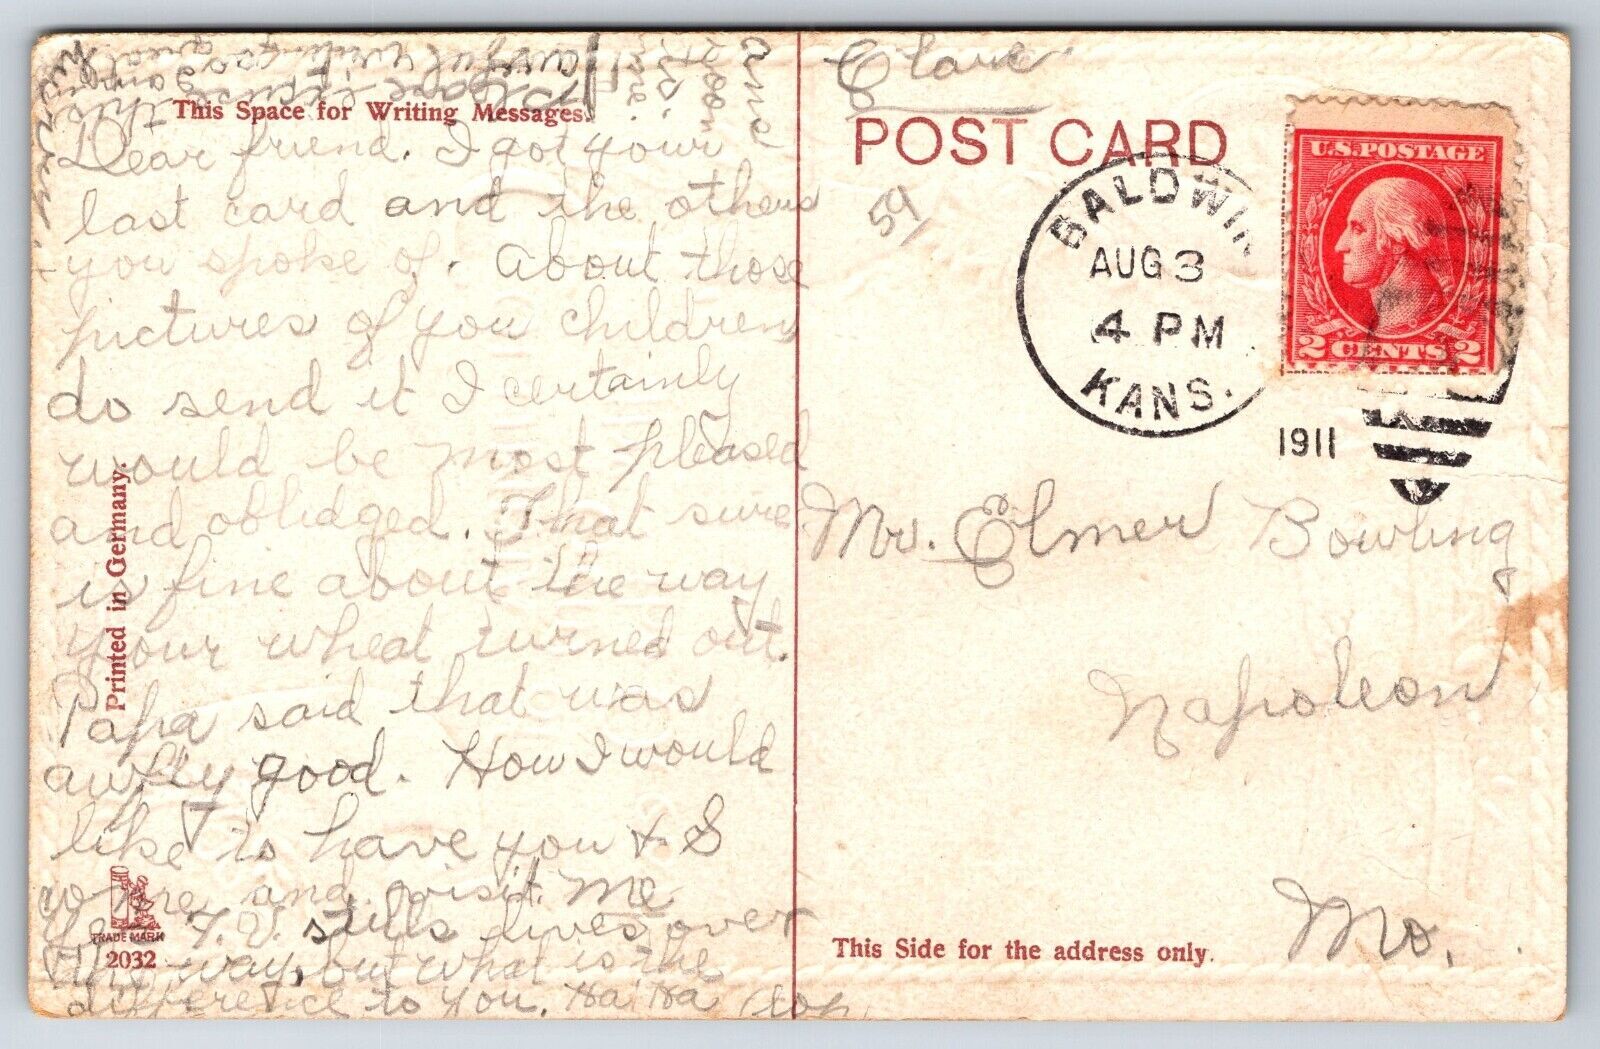 This Space for Writing Messages.
Dear friend. I got your
last card and the others
you spoke of. About those
pictures of you children
do send it I certainly
would be most pleased
and oblidged. That sure
is fine about the way
your wheat turned out.
Papa said that was
awfly good. How I would
like to have you & S
come and visit me
F. V. stills lives over
the way, but what is the
difference to you. Ha! Ha
Please excuse this
awful writing as I am in a
hurry.
ans
soon
Printed in Germany.
TRADE MARK
2032
Clare
POST CARD
59
BALDWIN
AUG 3
4 PM
KANS.
1911
U.S. POSTAGE
2 CENTS 2
Mr. Elmer Bowling
Napoleon
Mo.
This Side for the address only.